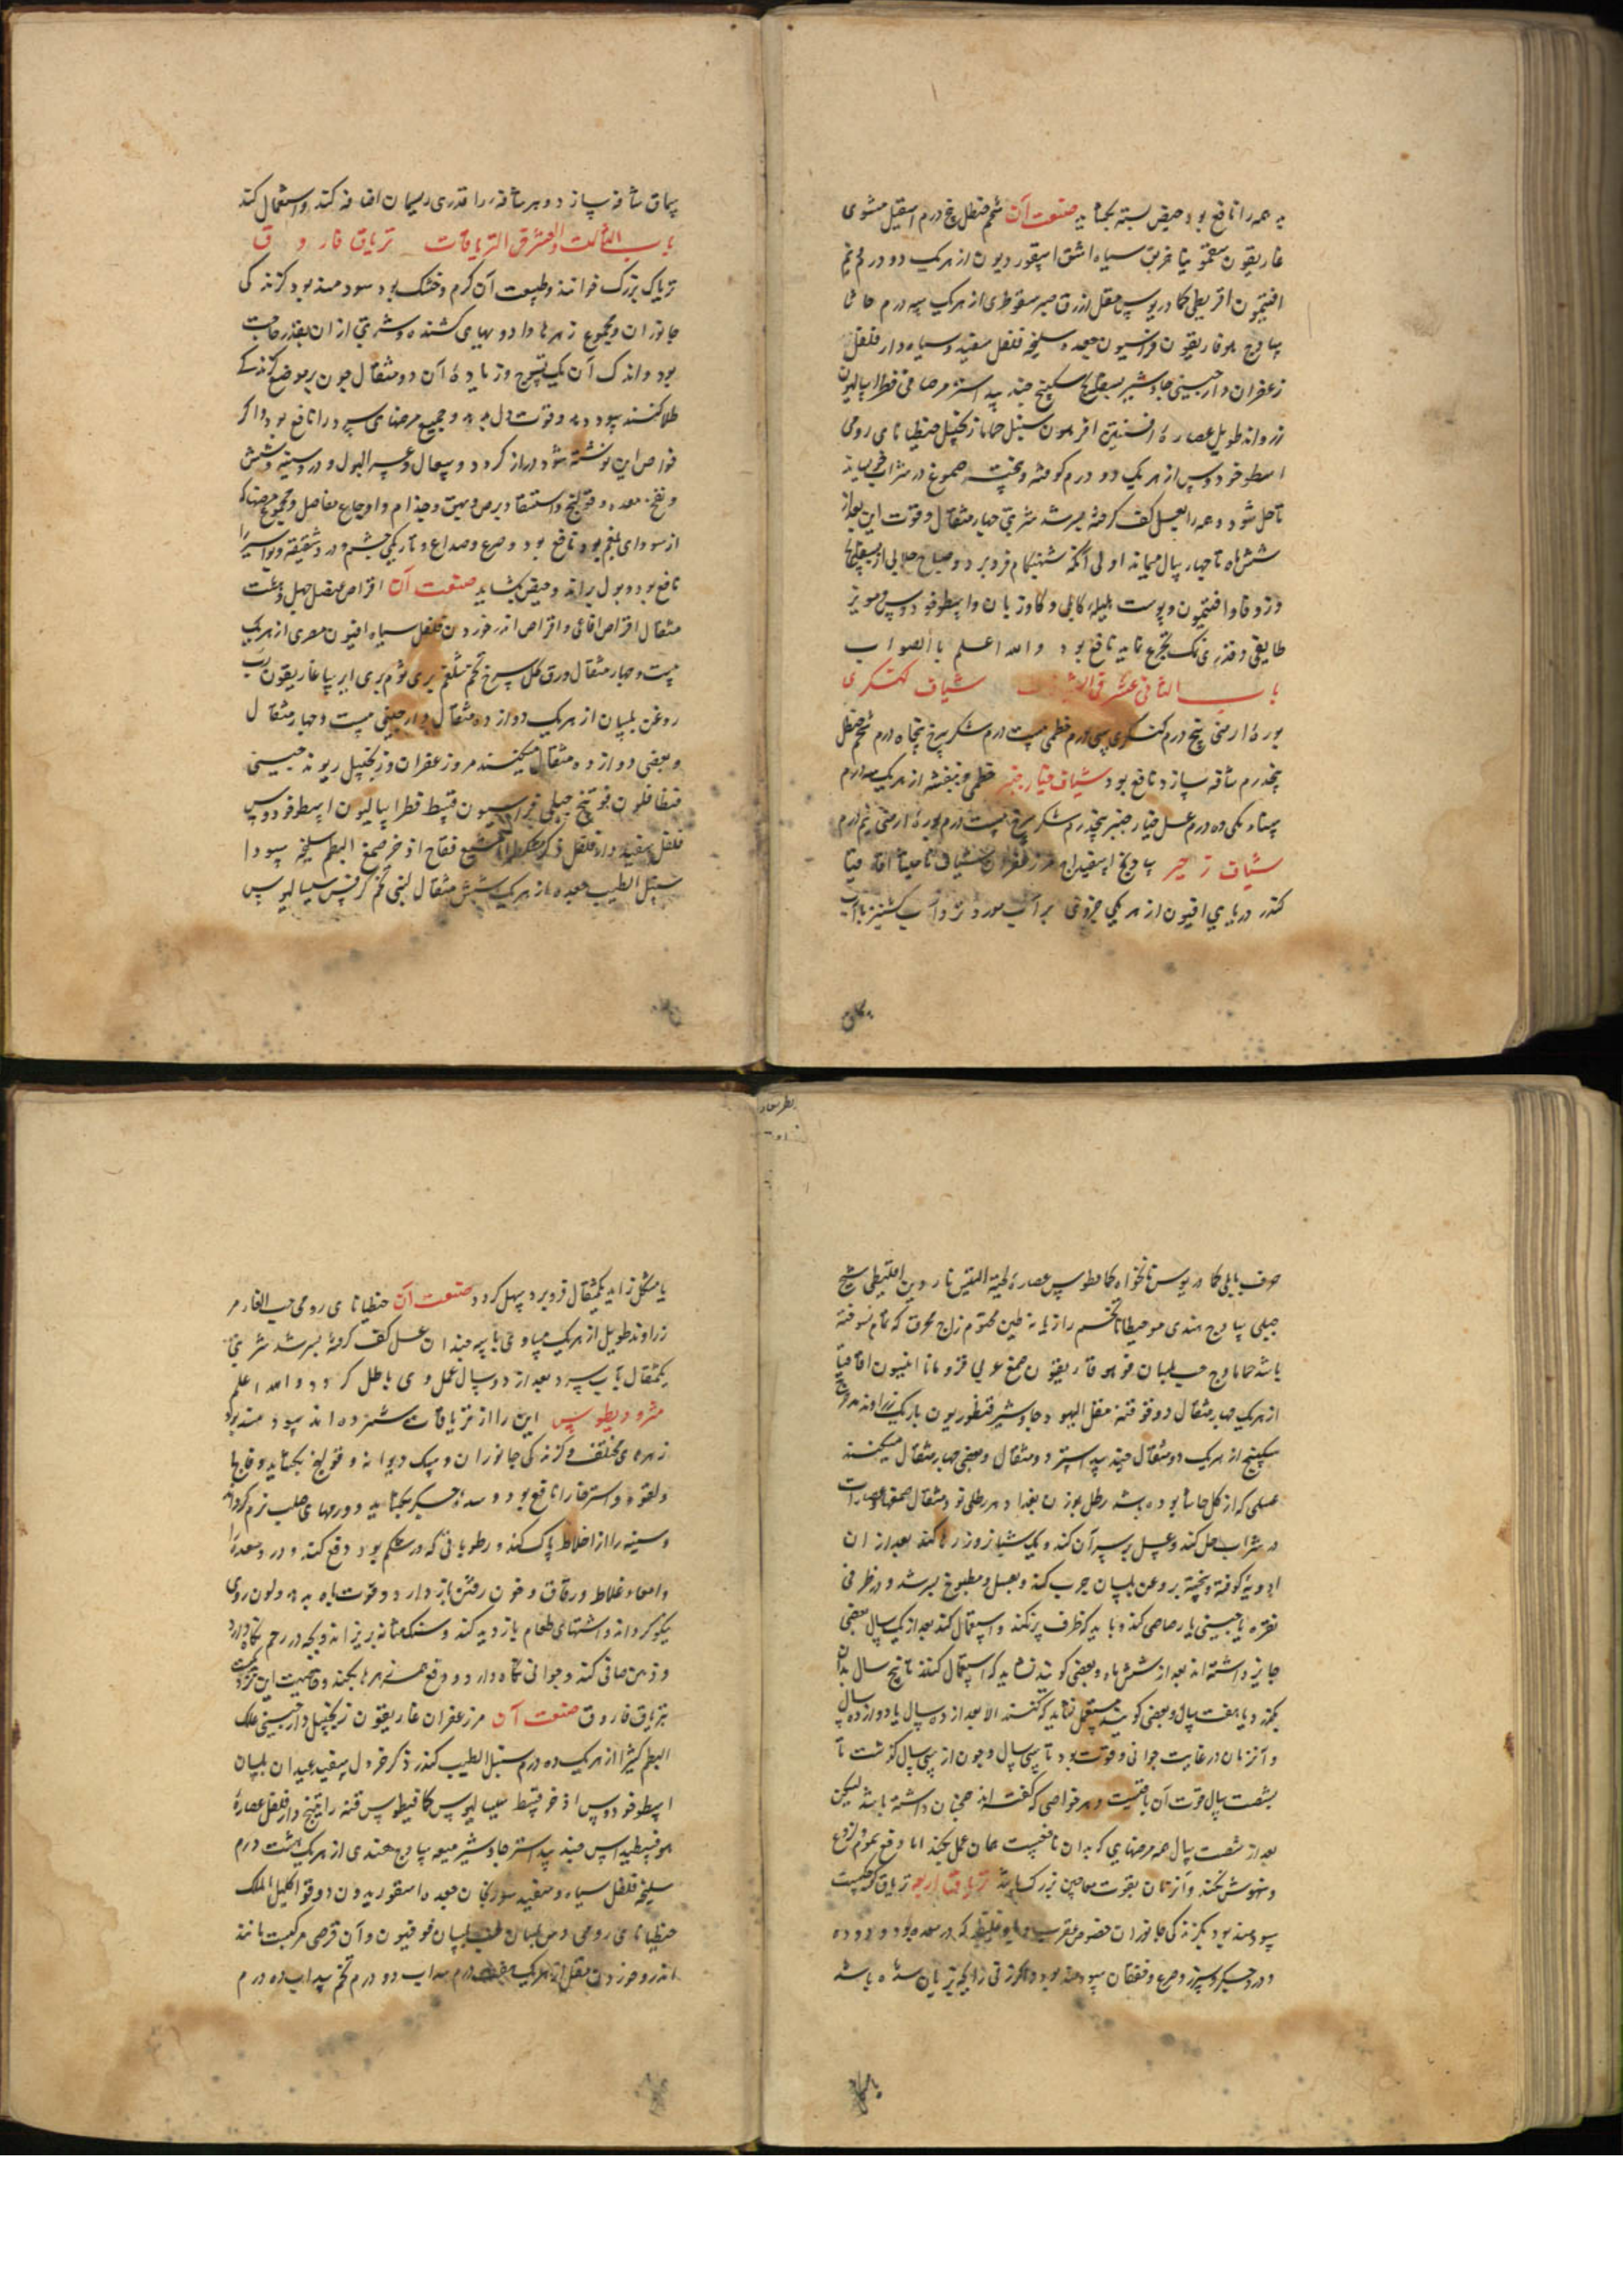 به همه را نافع بود و حیض بسته بکشاید صنعت آن شحم حنظل پنج درم اسقیل مشوی
غاریقون سقمونیا خربق سیاه اشق اسقوردیون از هر یک دو درم نیم
افتیمون اقریطی کمادریوس مقل ازرق صبر سقوطری از هر یک سه درم حاشا
ساذج هوفاریقون فراسیون جعده سلیخه فلفل سفید و سیاه دار فلفل
زعفران دارچینی جاوشیر بسفایج سکبینج جند بیدستر مر صافی فطراسالیون
زراوند طویل عصاره افسنتین افربیون سنبل حماما زنجبیل جنطیانای رومی
اسطوخودوس از هر یک دو درم کوفته و بیخته صموغ در شراب خیساند
تا حل شود و همه را بعسل کف گرفته بسرشد شربتی چهار مثقال و قوت این بعد از
شش ماه تا چهار سال میماند اولی آنکه شبهنگام فرو برد و صباح جلابی از بسفایج
و زوفا و افتیمون و پوست هلیله کابلی و کاوزبان و اسطوخودوس و مویز
طایفی و قدری نمک تجرع نماید نافع بود و الله اعلم بالصواب
باب الثانی عشر فی الشیاف شیاف کتسکری
بوره ارمنی پنج درم سی درم خطمی بیست درم شکر سرخ پنجاه درم شحم حنظل
پنجدرم شافه سازد نافع بود شیاف خیار چنبر خطمی و بنفشه از هر یک سه درم
سناء مکی ده درم عسل خیار چنبر پنجدرم شکر سرخ بیست درم بوره ارمنی نیم درم
شیاف زحیر اسفیداج مر زعفران شیاف مامیثا اقاقیا
کندر افیون از هر یکی جزوی بر آب مورد تر و آب کشنیز با آب
بکان
سماق شافه سازد و بر شافه را قدری ریسمان اضافه کند و استعمال کند
باب الثالث و العشر فی التریاقات تریاق فاروق
تریاک بزرک خوانند و طبیعت آن گرم و خشک بود سودمند بود گزندگی
جانوران و مجموع زهرها و ادویهای کشنده و شربتی از آن بقدر حاجت
بود و اندک آن یک تسوج و زیاده آن دو مثقال چون بر موضع گزندگی
طلا کنند سود دهد و قوت دل بدهد و جمیع مرضهای سرد را نافع بود و اگر
خواص این نوشته شود دراز گردد و سعال و عسر البول و درد سینه و شش
و نفخ معده و قولنج و استسقا و برص و بهق و جذام و اوجاع مفاصل و مجموع مرضها که
از سودای بلغم بود نافع بود و صرع و صداع و تاریکی چشم و درد شقیقه و بواسیر را
نافع بود و بول براند و حیض بکشاید صنعت آن اقراص عنصل چهل و هشت
مثقال اقراص افاعی و اقراص اندرخوردن فلفل سیاه افیون مصری از هر یک
بیست و چهار مثقال ورق گل سرخ تخم شلغم بری ثوم بری ایرسا غاریقون رب
روغن بلسان از هر یک دوازده مثقال دارچینی بیست و چهار مثقال
و بعضی دوازده مثقال میکنند مر و زعفران و زنجبیل ریوند چینی
فنطافلون فوتنج جبلی فراسیون قسط فطراسالیون اسطوخودوس
فلفل سفید دار فلفل ذکر فقاح اذخر صمغ البطم سلیخه سودا
سنبل الطیب جعده از هر یک شش مثقال لبنی تخم کرفس سیسالیوس
حرف بابلی کمادریوس نانخواه کمافیطوس عصاره لحیة التیس ناردین اقلیطی شیح
جبلی ساذج هندی مو جنطیانا تخم رازیانه طین مختوم زاج محرق که تمام نسوخته
باشد حماما وج حب بلسان هوفاریقون صمغ عربی قردمانا انیسون اقاقیا
از هر یک چهار مثقال دوقو قنه مقل الیهود جاوشیر قنطوریون باریک زراوند
سکبینج از هر یک دو مثقال جند بیدستر دو مثقال و بعضی چهار مثقال میکنند
عسلی که از گل حاشا بوده باشد رطل بوزن بغداد هر رطلی نود مثقال صمغها و عصارات
در شراب حل کند و عسل بر سر آن کند و یک شبانروز رها کند بعد از آن
ادویه کوفته و بیخته بروغن بلسان چرب کند و بعسل مطبوخ بسرشد و در ظرفی
نقره یا چینی یا رصاصی کند و باید که ظرف پر نکند و استعمال کند بعد از یک سال بعضی
جایز داشته اند بعد از شش ماه و بعضی گویند نشاید که استعمال کنند تا پنج سال بدان
بگذرد یا هفت سال و بعضی گویند مستعمل نشاید که کنند الا بعد از ده سال یا دوازده سال
و آنزمان در غایت جوانی و قوت بود تا سی سال و چون از سی سال گذشت تا
بشصت سال قوت آن باقیست و هر خواصی که گفته اند همچنان داشته باشد لیکن
بعد از شصت سال همه مرضهایی که بدان نافعست همان عمل بکند اما دفع سموم
و نهوش نکند و آنزمان بقوت معاجین بزرک باشد تریاق اربعه تریاق کوچکست
سودمند بود بگزندگی جانوران خصوص عقرب و بادهای غلیظ که در معده بود و درد
و درد جگر و سپرز و صرع و خفقان سودمند بود و اگر زنی را بچه زیان شده باشد
یا مشکل زاید یکمثقال فرو برد سهل گردد صنعت آن جنطیانای رومی حب الغار مر
زراوند طویل از هر یک مساوی با سه چندان عسل کف گرفته بسرشد شربتی
یکمثقال بآب سرد بعد از دو سال عمل وی باطل گردد و الله اعلم
مثرودیطوس این را از تریاقات شمرده اند سودمند بود
زهرهای مختلف و گزندگی جانوران و سک دیوانه و قولنج بکشاید و فالج را
و لقوه و استرخا را نافع بود و سده جگر بکشاید و ورمهای صلب نرم گرداند
و سینه را از اخلاط پاک کند و رطوباتی که در شکم بود دفع کند و درد معده را
و امعاء غلاظ و رقاق و خون رفتن باز دارد و قوت باه بدهد و لون روی
نیکو گرداند و اشتهای طعام بازدید کند و سنک مثانه بریزاند و بچه در رحم نگاه دارد
و ذهن صافی کند و جوانی نگاه دارد و دفع همه زهرها بکند و خاصیت این نزدیکست
بتریاق فاروق صنعت آن مر زعفران غاریقون زنجبیل دارچینی علک
البطم کثیرا از هر یک ده درم سنبل الطیب کندر ذکر خردل سفید عیدان بلسان
اسطوخودوس اذخر قسط سیسالیوس کمافیطوس قنه راتینج دار فلفل عصاره
هوفسطیداس جند بیدستر جاوشیر میعه ساذج هندی از هر یک هشت درم
سلیخه فلفل سیاه و سفید سورنجان جعده اسقوردیون دوقو اکلیل الملک
جنطیانای رومی دهن بلسان حب بلسان قوفیون و آن قرصی مرکبست مانند
اندروخوردن مقل از هر یک درم سداب دو درم تخم سداب ده درم